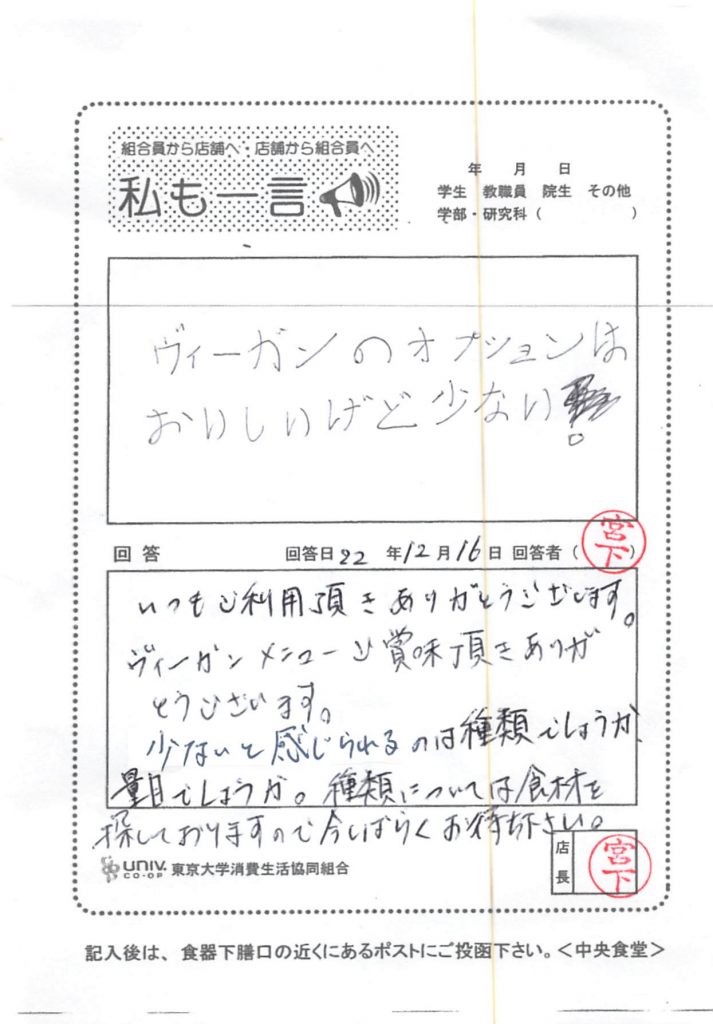 組合員から店舗へ・店舗から組合員へ
私も一言
年 月 日
学生 教職員 院生 その他
学部・研究科（ ）
ヴィーガンのオプションは
おいしいけど少ない。
回答 回答日22年12月16日 回答者（宮下）
いつもご利用頂きありがとうございます。
ヴィーガンメニューご賞味頂きありが
とうございます。
少ないと感じられるのは種類でしょうか、
量目でしょうか。種類については食材を
探しておりますので今しばらくお待ち下さい。
UNIV. CO-OP 東京大学消費生活協同組合
店長 宮下
記入後は、食器下膳口の近くにあるポストにご投函下さい。＜中央食堂＞